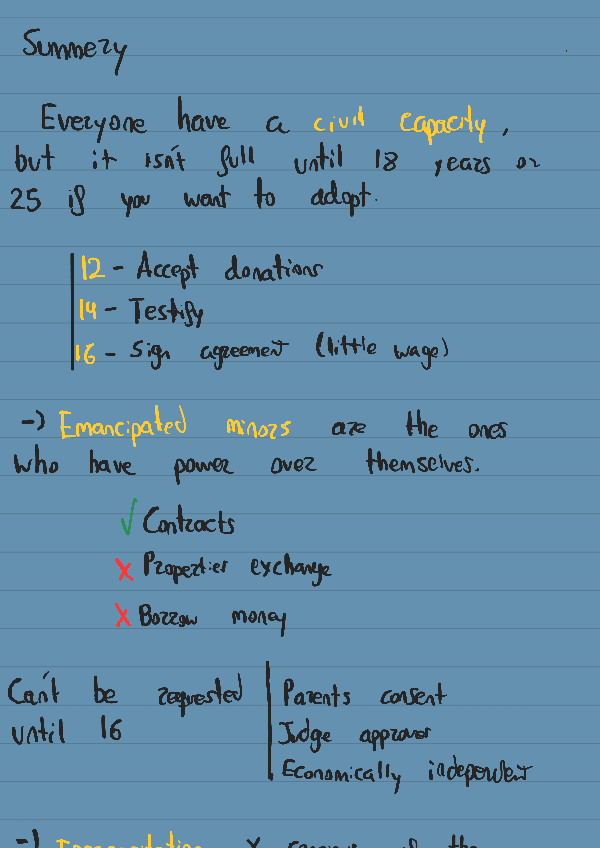 Summery
Everyone have a civil capacity,
but it isn't full until 18 years or
25 if you want to adopt.
12 - Accept donations
14 - Testify
16 - Sign agreement (little wage)
-) Emancipated minors are the ones
who have power over themselves.
√ Contracts
X Propertier exchange
X Borrow money
Can't be requested
until 16
Parents consent
Judge approver
Economically independent